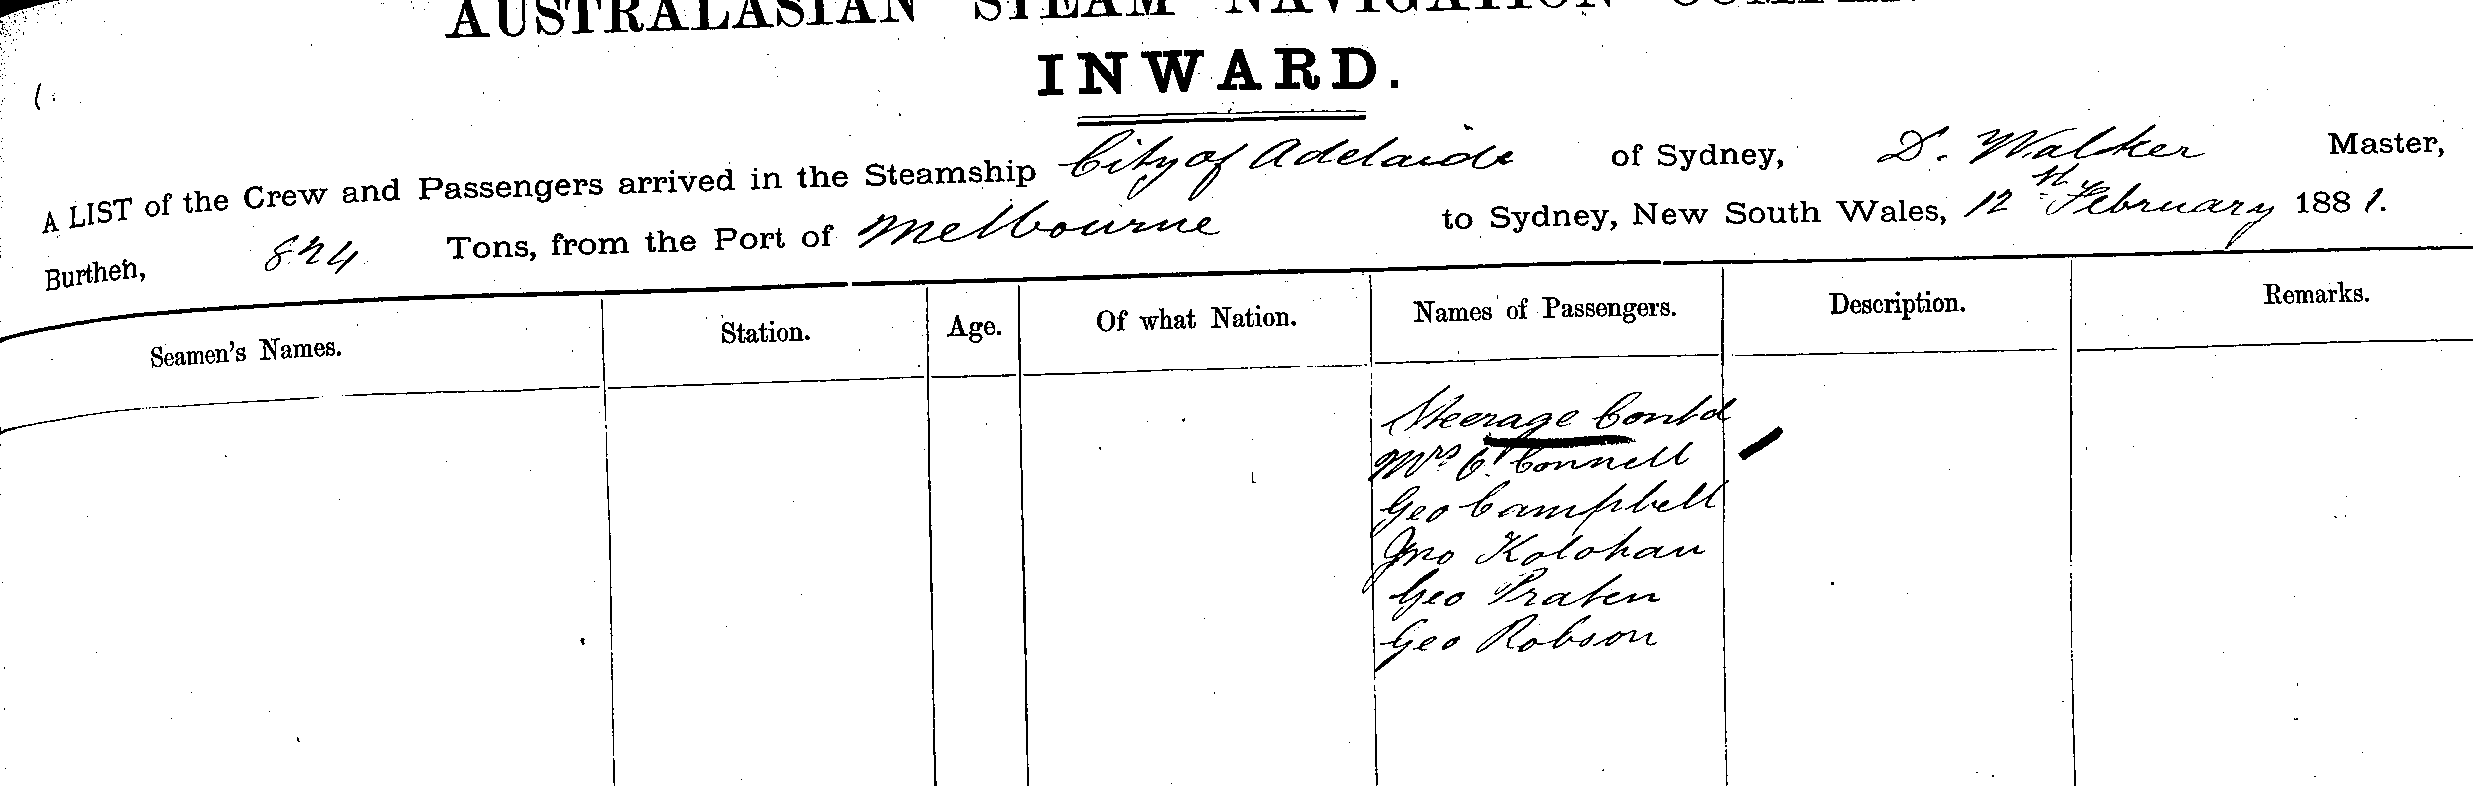 AUSTRALASIAN STEAM NAVIGATION
INWARD.
A LIST of the Crew and Passengers arrived in the Steamship City of Adelaide of Sydney, D. Walker Master,
Burthen, 824 Tons, from the Port of Melbourne to Sydney, New South Wales, 12st February 1881.
Seamen's Names. Station. Age. Of what Nation. Names of Passengers. Description. Remarks.
Steerage Contd
Mrs O'Connell
Geo Campbell
Jno Kolohan
Geo Praten
Geo Robson